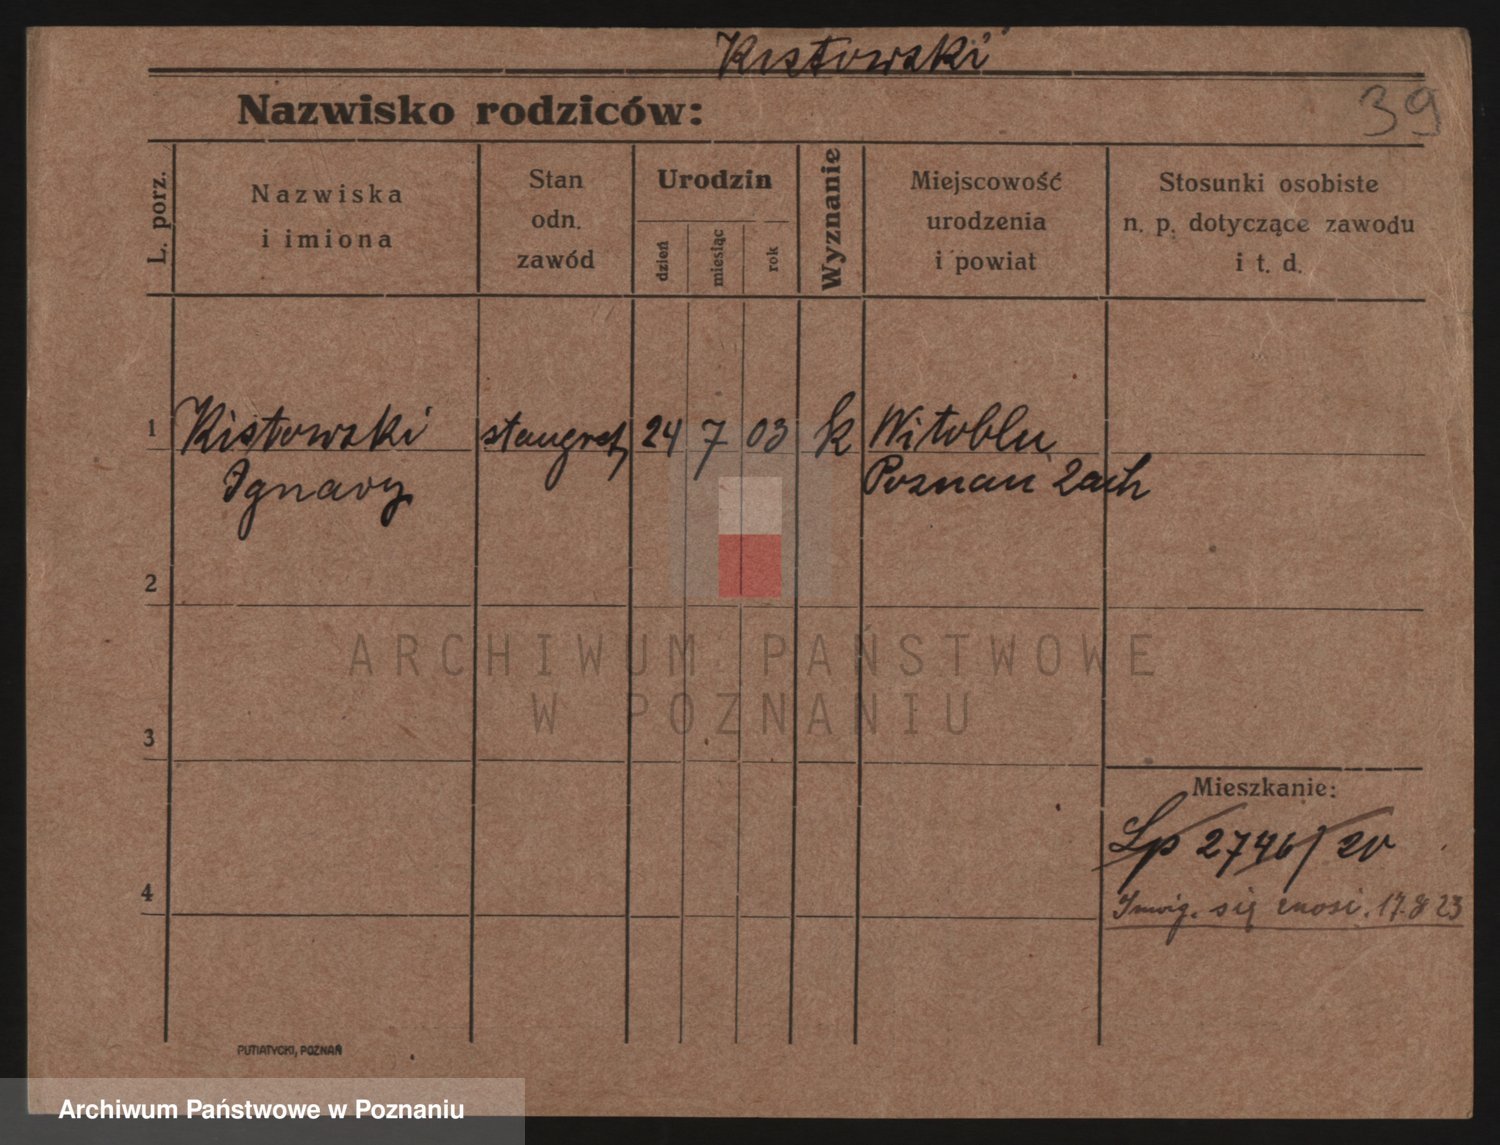 Kistowski
39
Nazwisko rodziców:
L. porz.
Nazwiska
i imiona
Stan
odn.
zawód
Urodzin
dzień
miesiąc
rok
Wyznanie
Miejscowość
urodzenia
i powiat
Stosunki osobiste
n. p. dotyczące zawodu
i t. d.
1 Kistowski stangret 24 7 03 k Witoblu
Ignacy Poznan Zach
2
ARCHIWUM PAŃSTWOWE
W POZNANIU
3
Mieszkanie:
Lp 2746/20
4
się znosi. 17.8 23
PUTIATYCKI, POZNAŃ
Archiwum Państwowe w Poznaniu